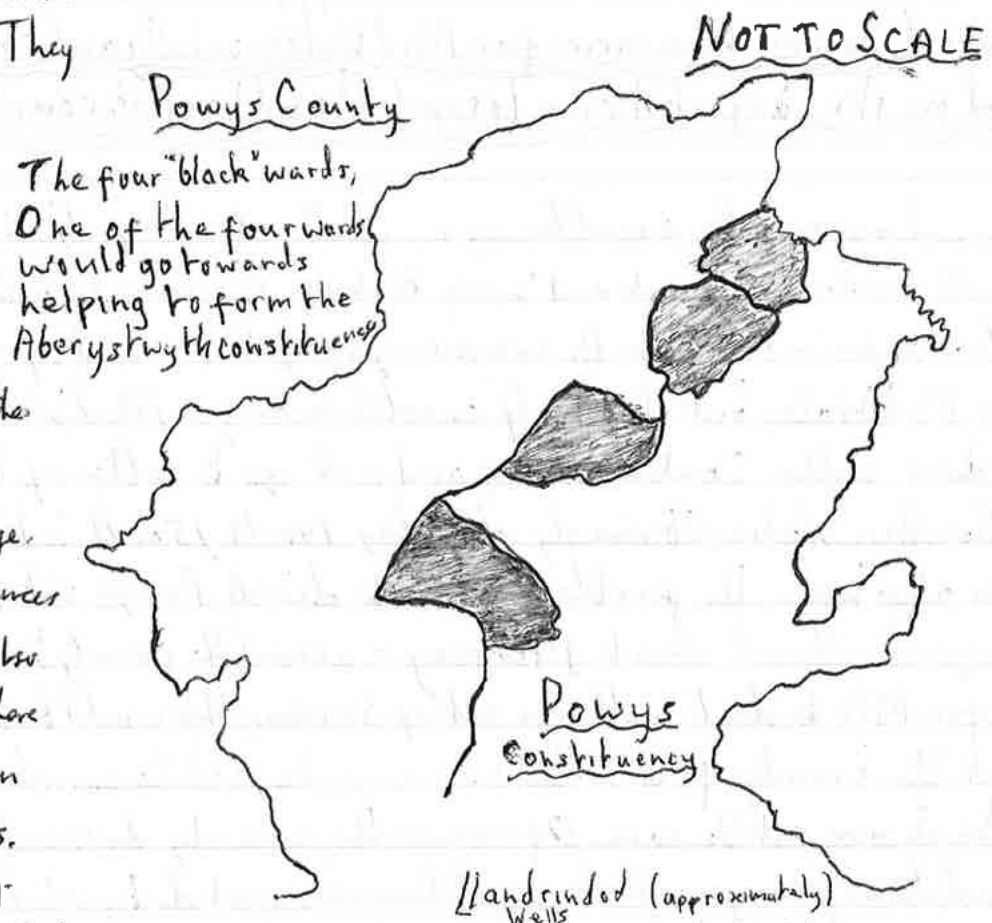 They
NOT TO SCALE
Powys County
The four "black" wards,
One of the four wards
would go towards
helping to form the
Aberystwyth constituency
Powys
Constituency
Llandrindod (approximataly)
Wells